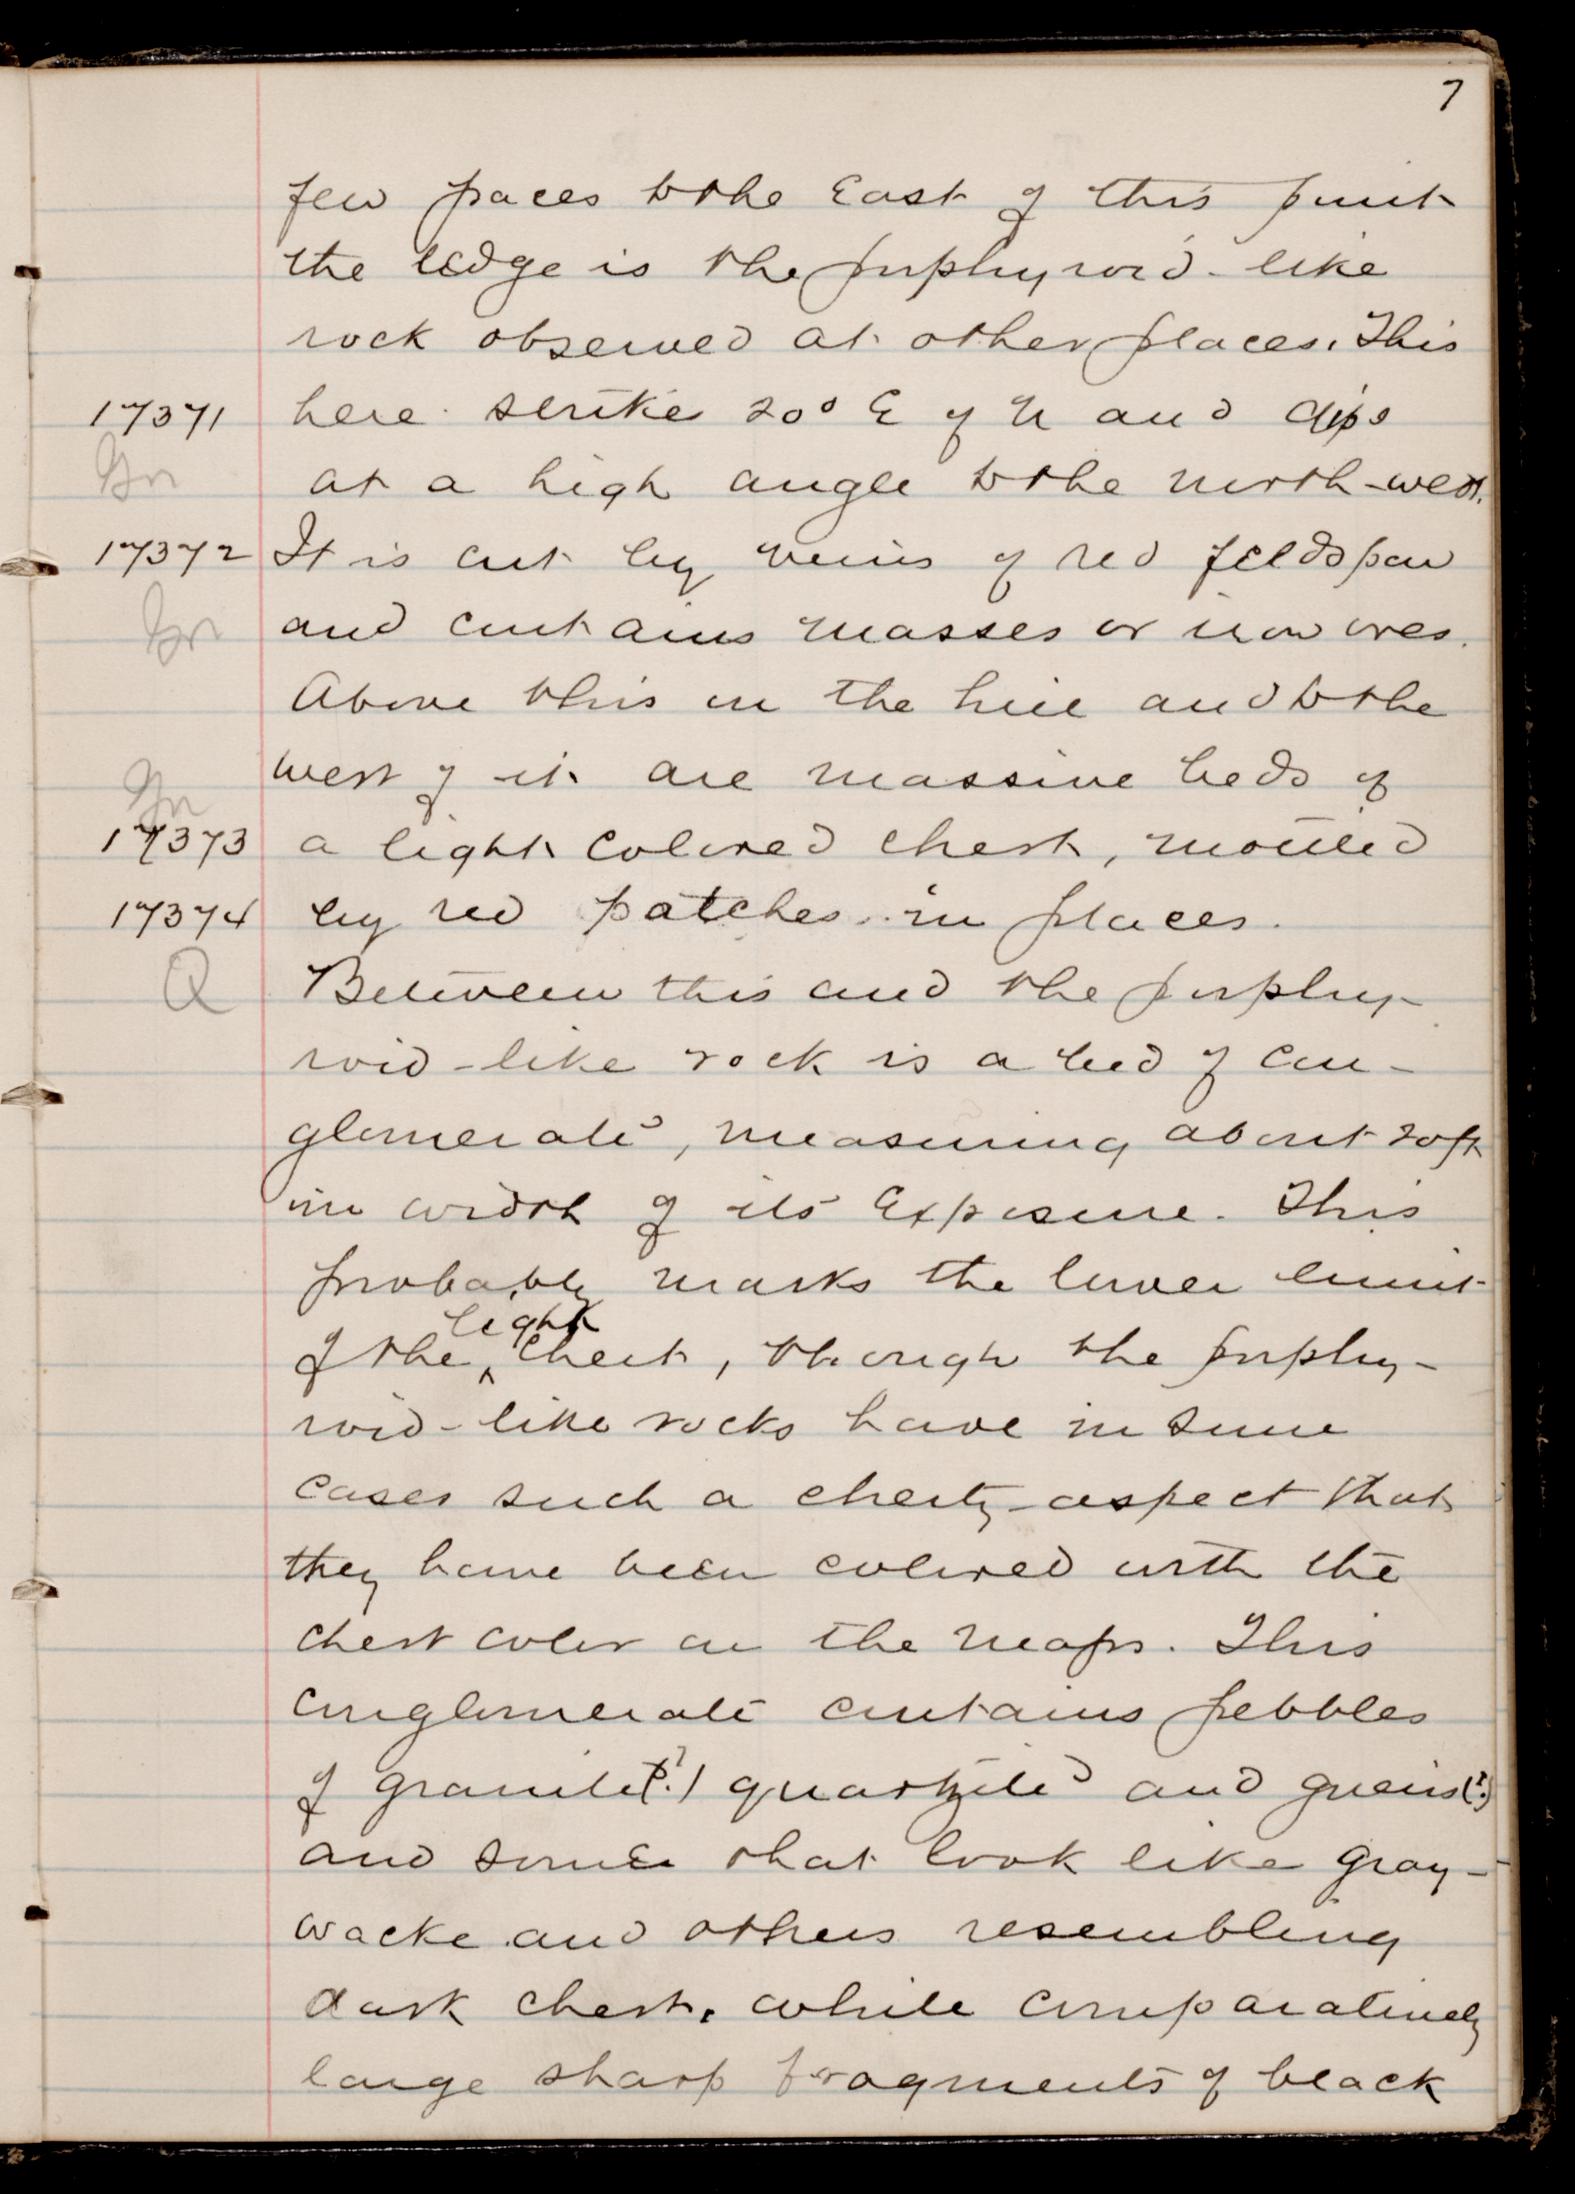 7
few paces to the East of this point
the ledge is the porphyroid-like
rock observed at other places. This
17371 here strike 20° E of N and dips
Gn
at a high angle to the north-west.
17372 It is cut by veins of red feldspar
Gn
and contains masses or iron ores.
Above this on the hill and to the
west of it are massive beds of
Gn
17373 a light colored chert, mottled
17374 by red patches in places.
Q
Between this and the porphy-
roid-like rock is a bed of con-
glomerate, measuring about 20 ft
in width of its Exposure. This
probably marks the lower limit
light
of the ^ chert, though the porphy-
roid-like rocks have in some
cases such a cherty aspect that
they have been colored with the
chert color on the maps. This
conglomerate contains pebbles
of granite(?) quartzite and gneiss(?)
and some that look like gray-
wacke and others resembling
dark chert, while comparatively
large sharp fragments of black